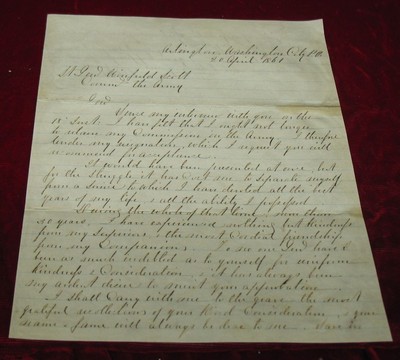 Arlington Washington City P.O.
20 April 1861
Lt Genl Winfield Scott
Commd the Army
Genl
Since my interview with you on the
18th Inst: I have felt that I ought not longer
to retain my Commission in the Army. I therefore
tender my resignation, which I request you will
recommend for acceptance.
It would have been presented at once, but
for the struggle it has cost me to separate myself
from a Service to which I have devoted all the best
years of my life, & all the ability I possessed.
During the whole of that time, more than
30 years, I have experienced nothing but kindness
from my Superiors, & the most Cordial friendship
from my Companions. To no one Genl have I
been as much indebted as to yourself for uniform
kindness & Consideration, & it has always been
my ardent desire to merit your approbation.
I shall carry with me to the grave the most
grateful recollections of your kind Consideration, & your
name & fame will always be dear to me. Save in